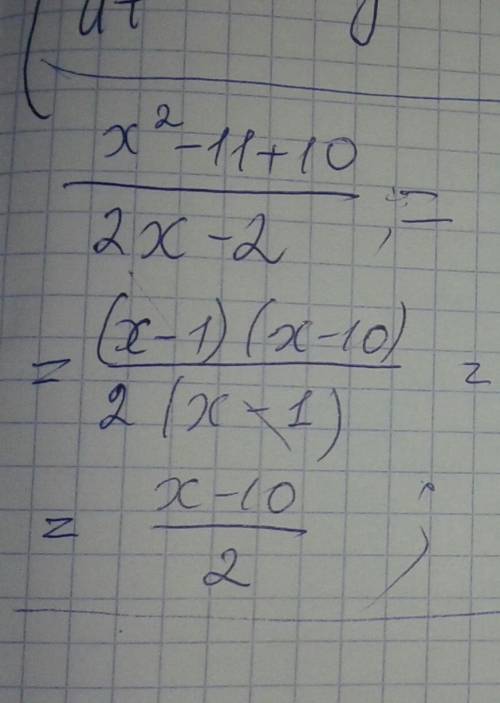 x² - 11 + 10
2x - 2 ; =
= (x - 1) (x - 10) =
2 (x - 1)
= x - 10 ;
2